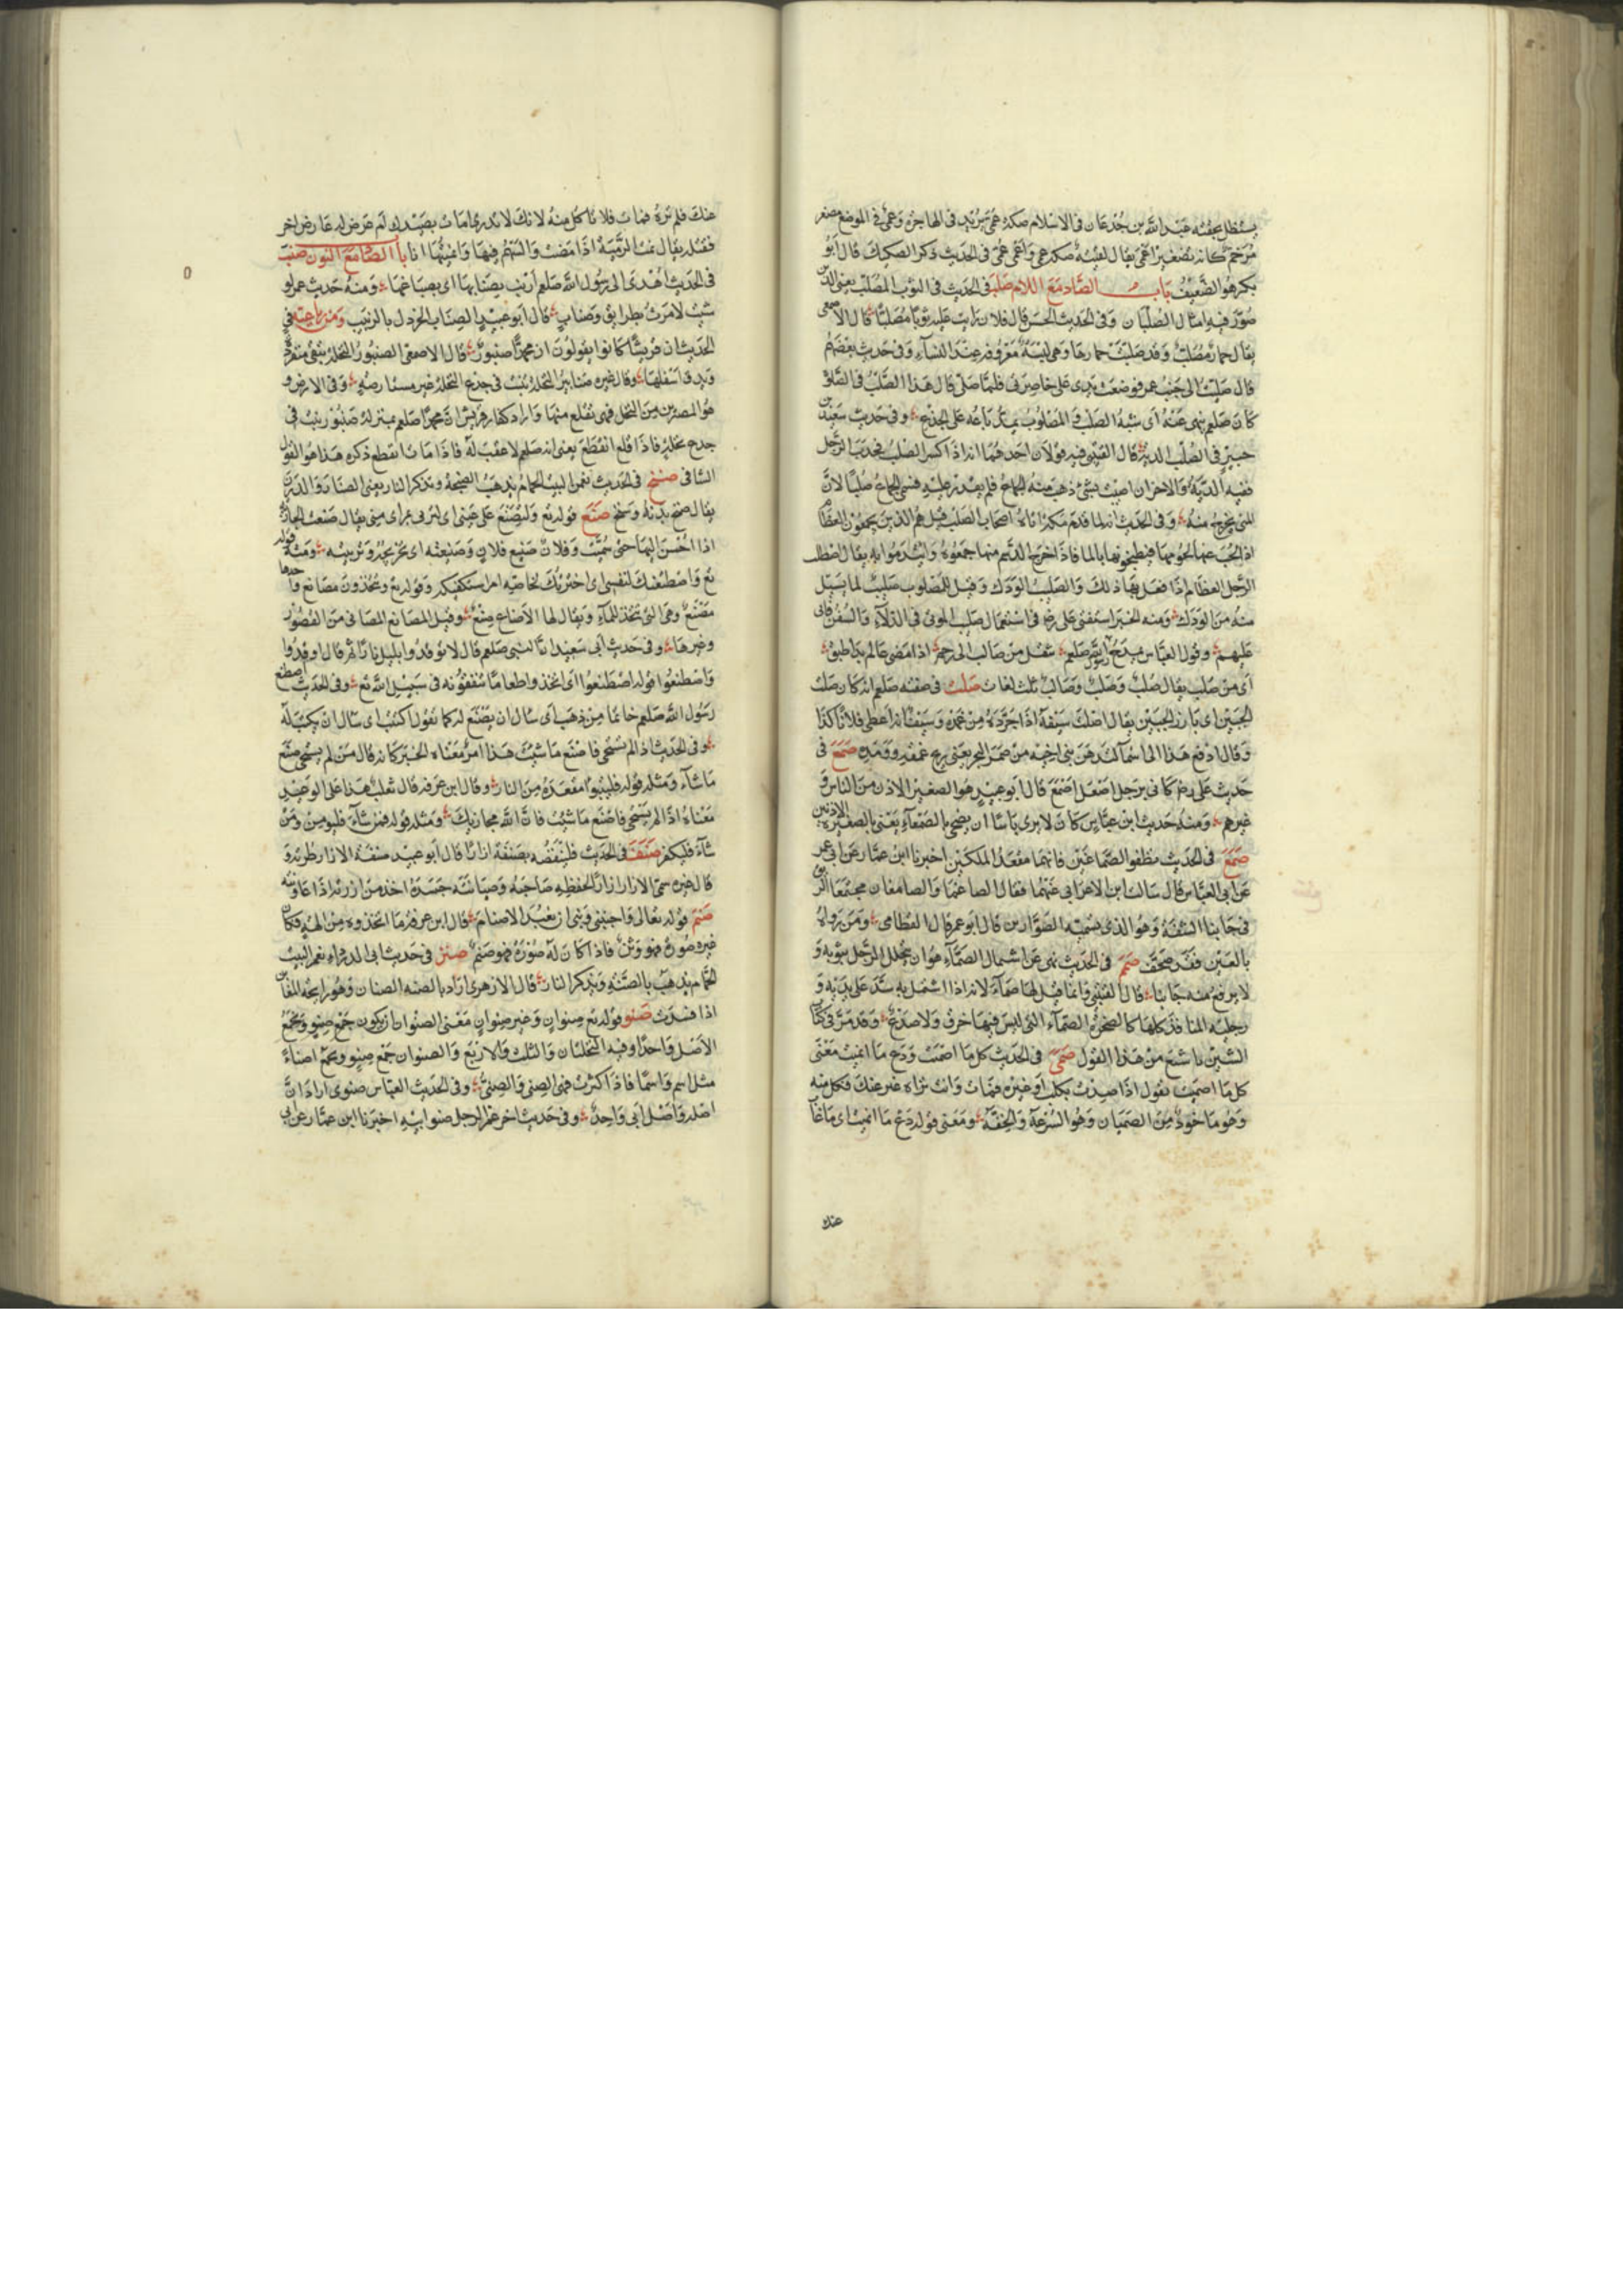 يستظل بجفنة عبد الله بن جدعان في الاسلام صكة عمي يريد في الهاجرة وعمي في الموضع مصغر
مرخم كانه تصغير اعمى يقال لقيته صكة عمي واعمى عمي في الحديث ذكر الصكيك قال ابو
بكر هو الضعيف باب الصاد مع اللام صلب في الحديث في الثوب المصلب يعني الذي
صور فيه امثال الصلبان وفي الحديث الحسن قال فلان رايت عليه ثوبا مصلبا قال الاصمعي
يقال خمار مصلب وقد صلبت خمارها وهي لبسة معروفة عند النساء وفي حديث بعضهم
قال صليت الى جنب عمر فوضعت يدي على خاصرتي فلما صلى قال هذا الصلب في الصلوة
كان صلعم ينهى عنه اى شبه الصلب في المصلوب يمد باعه على الجذع وفي حديث سعيد بن
جبير في الصلب الدية قال القتيبي فيه قولان احدهما انه اذا كسر الصلب فحدب الرجل
ففيه الدية والاخر ان اصيب بشئ ذهب منه الجماع فلم يقدر عليه فسمى الجماع صلبا لان
المني يخرج منه وفي الحديث انه لما قدم مكة اتاه اصحاب الصلب قيل هم الذين يجمعون العظام
اذا لحب عنها لحومها فيطبخونها بالما فاذا خرج الدسم منها جمعوه وائتدموا به يقال اصطلب
الرجل العظام اذا فعل بها ذلك والصلب الودك وقيل للمصلوب صليب لما يسيل
منه من الودك ومنه الخبر استفتى على رضه في استعمال صليب الموتى في الدلاء والسفن فابى
عليهم وقول العباس يمدح رسول الله صلعم تنقل من صالب الى رحم اذا مضى عالم بدا طبق
اى من صلب يقال صلب وصلب وصالب ثلث لغات صلت في صفته صلعم انه كان صلت
الجبين اى بارز الجبين يقال اصلت سيفه اذا جرده من غمده
حديث على رضه كاني برجل اصعل اصمع قال ابو عبيد هو الصغير الاذن من الناس و
غيرهم ومنه حديث ابن عباس كان لا يرى باسا ان يضحى بالصمعاء يعني بالصغيرة الاذنين
صمغ في الحديث نظفوا الصماغين فانهما مقعدا الملكين اخبرنا ابن عمار عن ابي عمر
عن ابي العباس قال سالت ابن الاعرابي عنهما فقال الصاغمان والصامغان مجتمعا الريق
في جانبا الشفة وهو الذي يسميه الصوارين قال ابو عمر قال العطامي ومن رواه
بالعين فقد صحف صمم في الحديث نهى عن اشتمال الصماء هو ان يجلل الرجل بثوبه و
لا يرفع منه جانبا قال القتيبي وانما قيل لها صماء لانه اذا اشتمل به سد على يديه و
رجليه المنافذ كلها كالصخرة الصماء التي ليس فيها خرق ولا صدع وقد مر في كتاب
الشين باشبع من هذا القول صمى في الحديث كل ما اصميت ودع ما انميت معنى
كل ما اصميت يقول اذا صيدت بكلب او غيره فمات وانت تراه غير عنك فكل منه
وهو ماخوذ من الصميان وهو السرعة والخفة ومعنى قوله دع ما انميت اى ما غاب
عنك
عنك فلم تره فمات فلا تاكل منه لانك لا تدري امات بصيدك ام عرض له عارض اخر
فقتله يقال نمت الرمية اذا مضت والسهم فيها وانميتها انا باب الصاد مع النون صنب
في الحديث اهدى الى رسول الله صلعم ارنب بصنابها اى بصباغها ومنه حديث عمر لو
شئت لامرت بطرائق وصناب قال ابو عبيد الصناب الخردل بالزبيب ومن رباعيته في
الحديث ان قريشا كانوا يقولون ان محمدا صنبور قال الاصمعي الصنبور النخلة تبقى منفردة
ويدق اسفلها وقال غيره صنابير النخلة تنبت في جذع النخلة غير مستارضة في الارض و
هو المصر من النخل فهي تقلع منها واراد كفار قريش ان محمدا صلعم بمنزلة صنبور ينبت في
جذع نخلة فاذا قلع انقطع يعني انه صلعم لا عقب له فاذا مات انقطع ذكره هذا هو القول
الشافي صنخ في الحديث نعم البيت الحمام يذهب الصنخة ويذكر النار يعني الصنان والدرن
يقال صنخ بدنه وسنخ صنع قوله تع ولتصنع على عيني اى لتربى بمراى مني يقال صنعت الجارية
اذا احسن اليها حتى سمنت وفلان صنيع فلان وصنيعته اى تخريجه وتربيته ومنه قوله
تع واصطنعتك لنفسي اى اخترتك لخاصية امر استكفيكه وقوله تع وتتخذون مصانع واحدها
مصنع وهي التي تتخذ للماء ويقال لها الاصناع صنع وقيل المصانع المصانى من القصور
وغيرها وفي حديث ابي سعيد ان النبي صلعم قال لا توقدوا بليل نارا ثم قال اوقدوا
واصطنعوا قوله اصطنعوا اى اتخذوا طعاما تنفقونه في سبيل الله تع وفي الحديث اصطنع
رسول الله صلعم خاتما من ذهب اى سال ان يصنع له كما تقول اكتتب اى سال ان يكتب له
وفي الحديث اذا لم تستحي فاصنع ما شئت هذا امر معناه الخبر كانه قال من لم يستحي صنع
ما شاء ومثله قوله فليتبوا مقعده من النار وقال ابن عرفة قال ثعلب هذا على الوعيد
معناه اذا لم تستحي فاصنع ما شئت فان الله مجازيك ومثله قوله فمن شاء فليومن ومن
شاء فليكفر صنف في الحديث فلينفضه بصنفة ازاره قال ابو عبيد صنفة الازار طرته و
قال غيره سمى الازار ازارا لحفظه صاحبه وصيانته جسده اخذ من ازرته اذا عاونته
صنم قوله تعالى واجنبني وبني ان نعبد الاصنام قال ابن عرفة ما اتخذوه من الهة فكان
غيره صورة فهو وثن فاذا كان له صورة فهو صنم صنن في حديث ابي الدرداء نعم البيت
الحمام يذهب بالصنة ويذكر النار قال الازهري اراد بالصنة الصنان وهو رايحة المغابن
اذا فسدت صنو قوله تع صنوان وغير صنوان معنى الصنوان ان يكون جمع صنو ويجمع
الاصل واحدا وفيه النخلتان والثلث والاربع والصنوان جمع صنو ويجمع اصناء
مثل اسم واسما فاذا كثرت فهي الصنى والصنى وفي الحديث العباس صنوى اراد ان
اصله واصل ابي واحد وفي حديث اخر عم الرجل صنو ابيه اخبرنا ابن عمار عن ابي